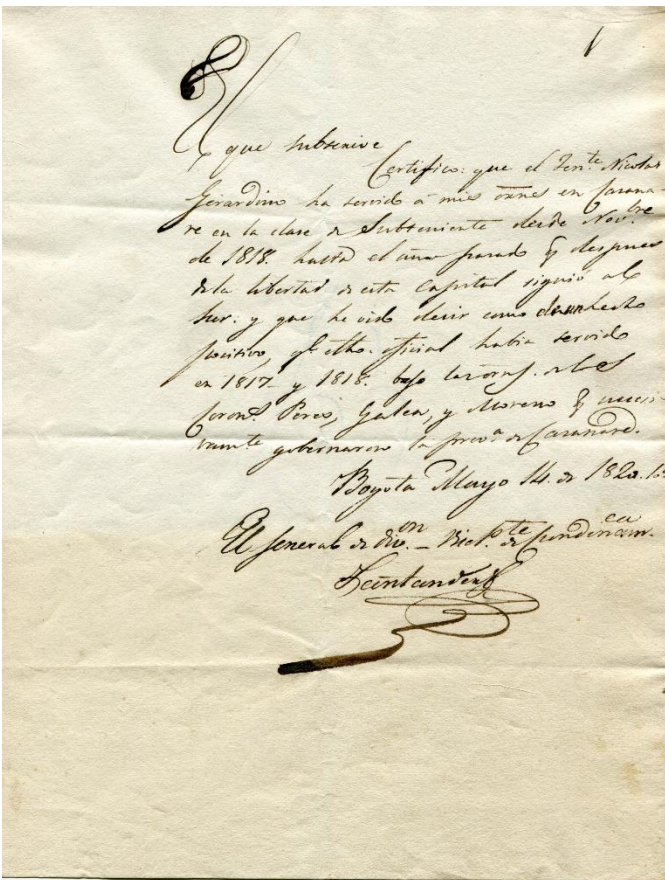 1
El que subscrive
Certifico: que el Ten.te Nicolas
Gerardino ha servido à mis orñes en Casana-
re en la clase de Subteniente desde Nov.bre
de 1818. hasta el año pasado q despues
de la libertad de esta Capital siguió al
Sur: y que he oido decir como de un hecho
positivo, q.e dho. oficial habia servido
en 1817. y 1818. bajo las orns. de los
Coron.s Peres, Galea, y Moreno q sucesi-
vam.te gobernaron la prov.a de Casanare.
Bogotá Mayo 14. de 1820.
El General de Div.on – Vice P.te de Cundinam.ca
Santander